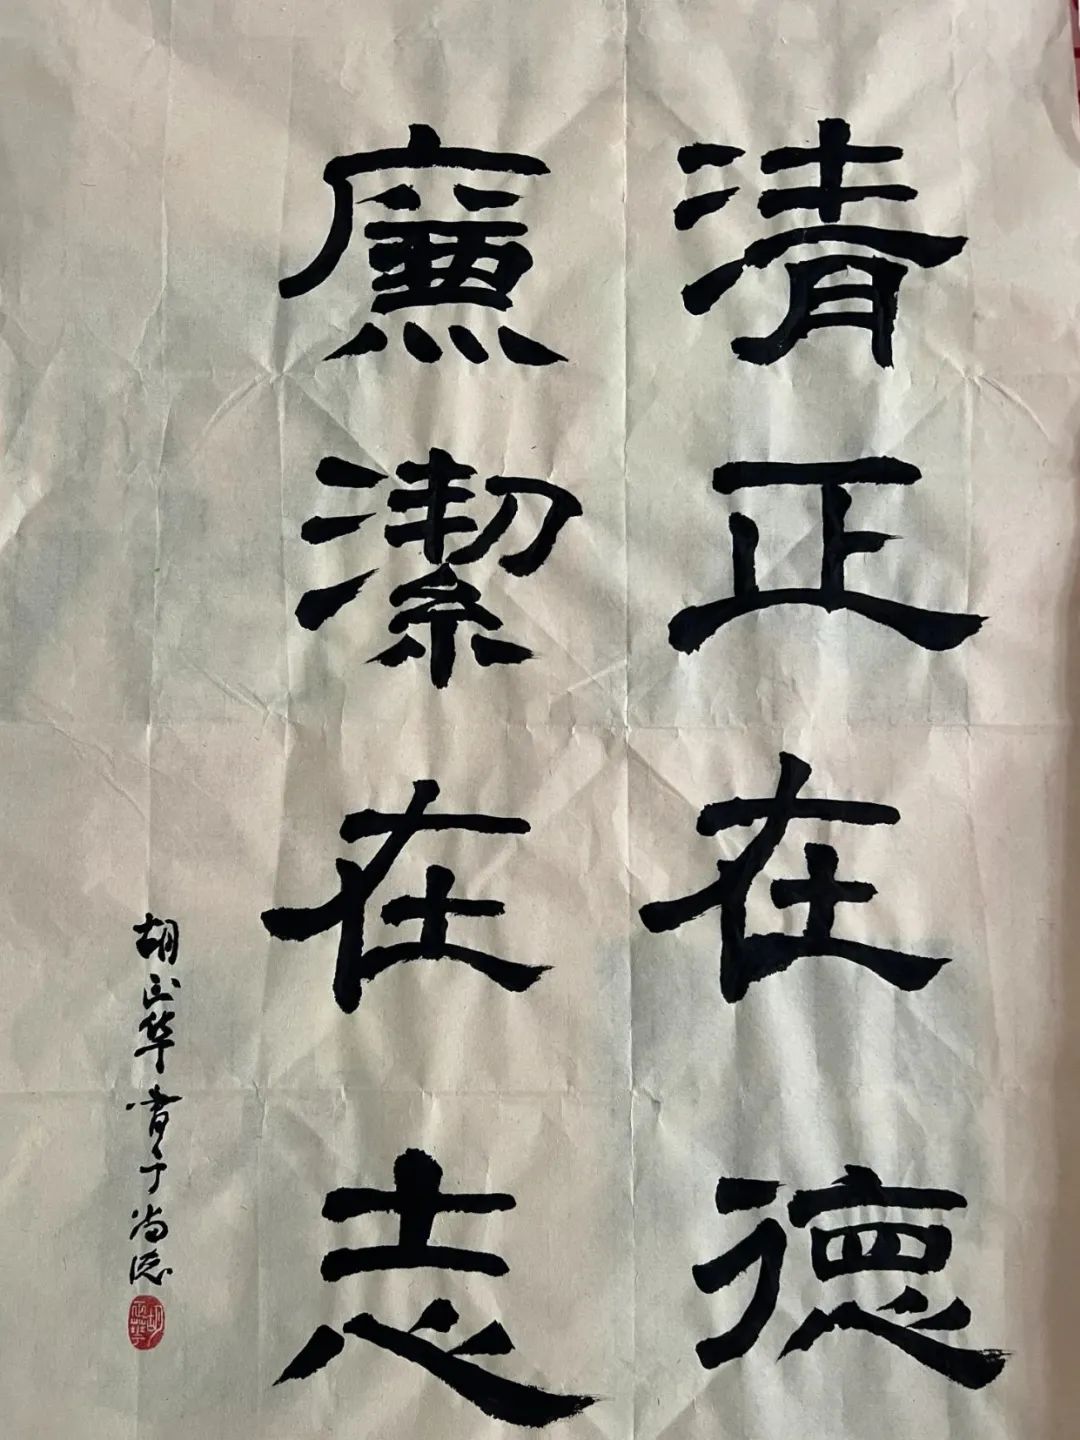 清正在德
廉潔在志
胡正华书于尚德
胡正華